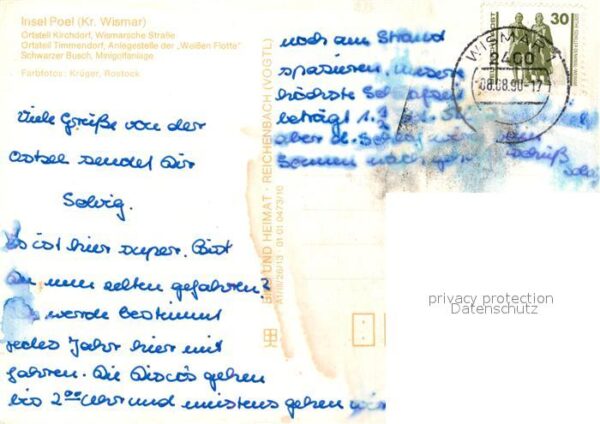 Insel Poel (Kr. Wismar)
Ortsteil Kirchdorf, Wismarsche Straße
Ortsteil Timmendorf, Anlegestelle der „Weißen Flotte"
Schwarzer Busch, Minigolfanlage
Farbfotos: Krüger, Rostock
Viele Grüße von der
Ostsee sendet Dir
Solvig.
Es ist hier super. Bist
Du nun selten gefahren?
werde bestimmt
jedes Jahr hier mit
fahren. Die Discos gehen
bis 2 00 Uhr und meistens gehen wir
noch am Strand
spazieren, unsere
höchste
beträgt
aber d.
BILD UND HEIMAT · REICHENBACH (VOGTL)
A1/III/26/13 01 01 0473/10
30
WISMAR 1
2400
08.08.90-17
privacy protection
Datenschutz